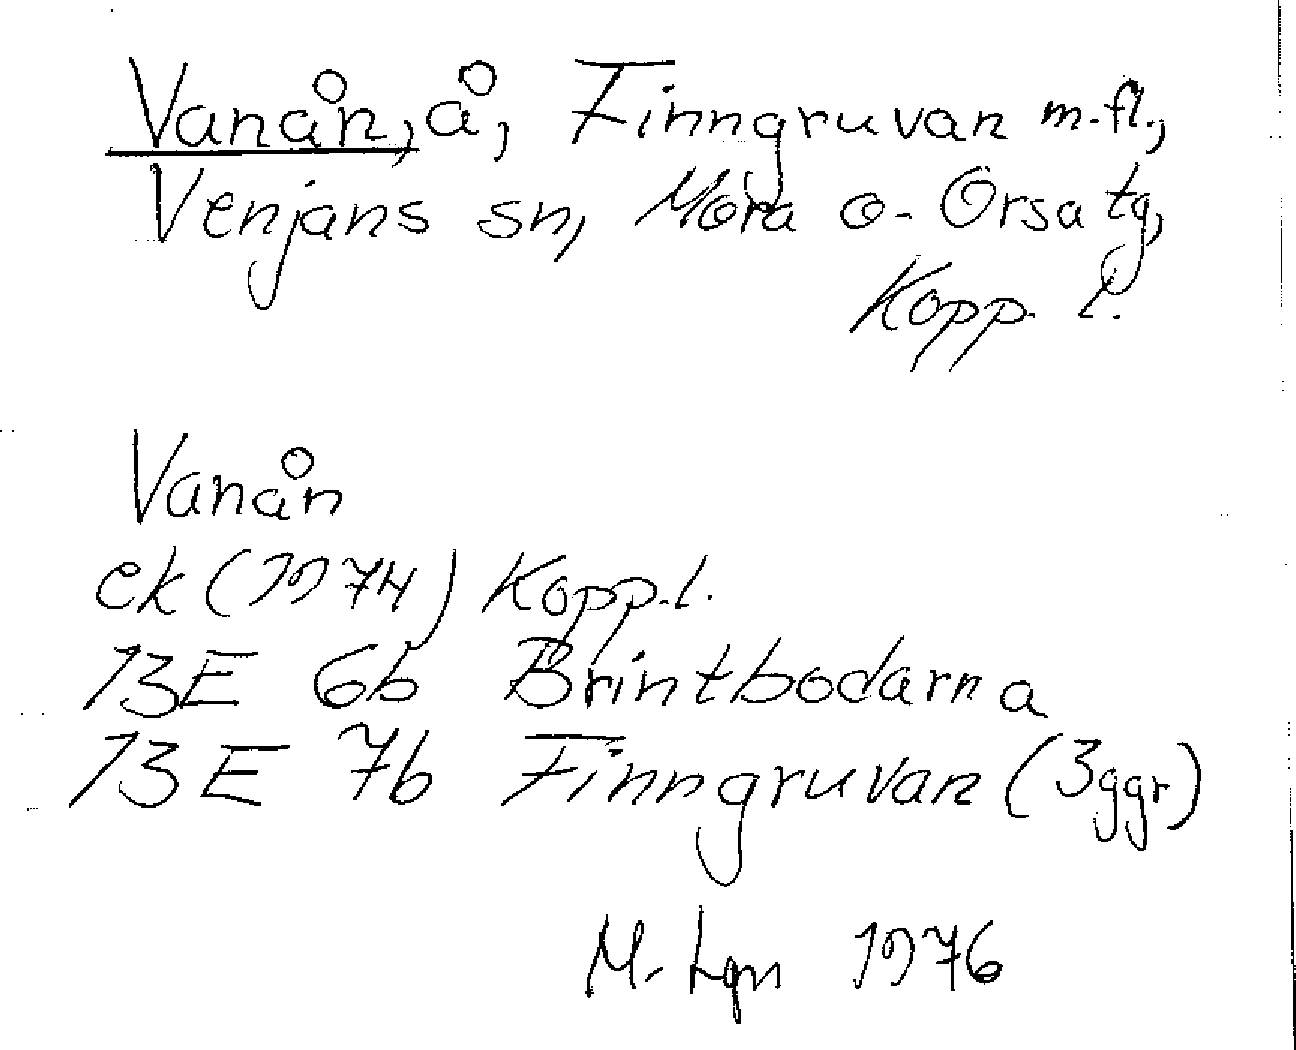 Vanån, å, Finngruvan m.fl.,
Venjans sn, Mora o. Orsa tg,
Kopp. l.
Vanån
ek (1974) Kopp.l.
13E 6b Brintbodarna
13E 7b Finngruvan (3ggr)
M. Lgn 1976